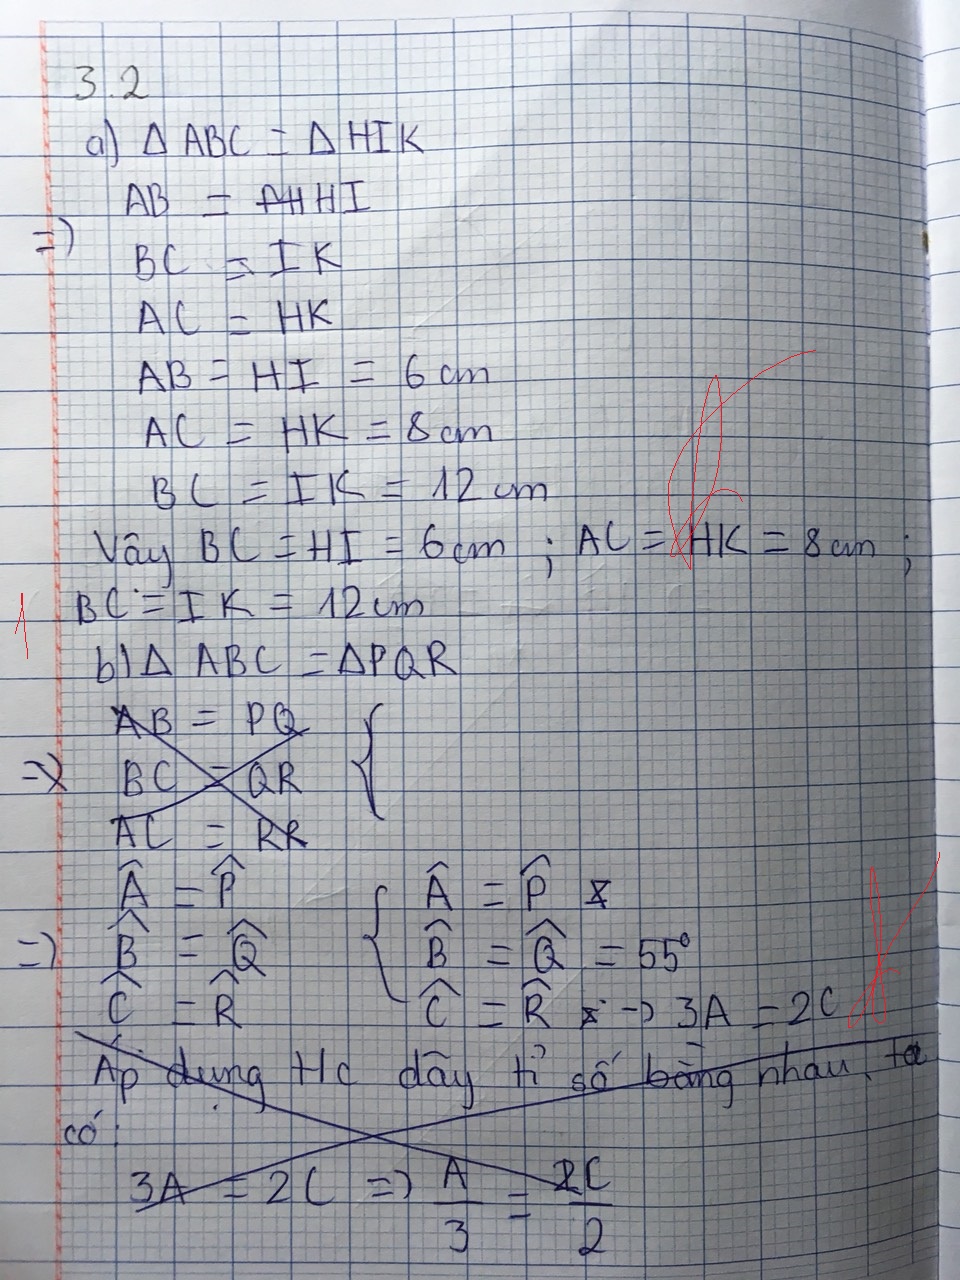 3.2
a) Δ ABC = Δ HIK
AB = HI
=>
BC = IK
AC = HK
AB = HI = 6 cm
AC = HK = 8 cm
BC = IK = 12 cm
Vây BC = HI = 6 cm ; AC = HK = 8 cm ;
BC = IK = 12 cm
1
b) Δ ABC = Δ PQR
AB = PQ {
=> BC = QR
AC = RR
Â = P̂ { Â = P̂
=> B̂ = Q̂ B̂ = Q̂ = 55°
Ĉ = R̂ Ĉ = R̂ -> 3A = 2C
Áp dụng Hc dãy tỉ số bằng nhau, ta
có:
3A = 2C => A/3 = 2C/2